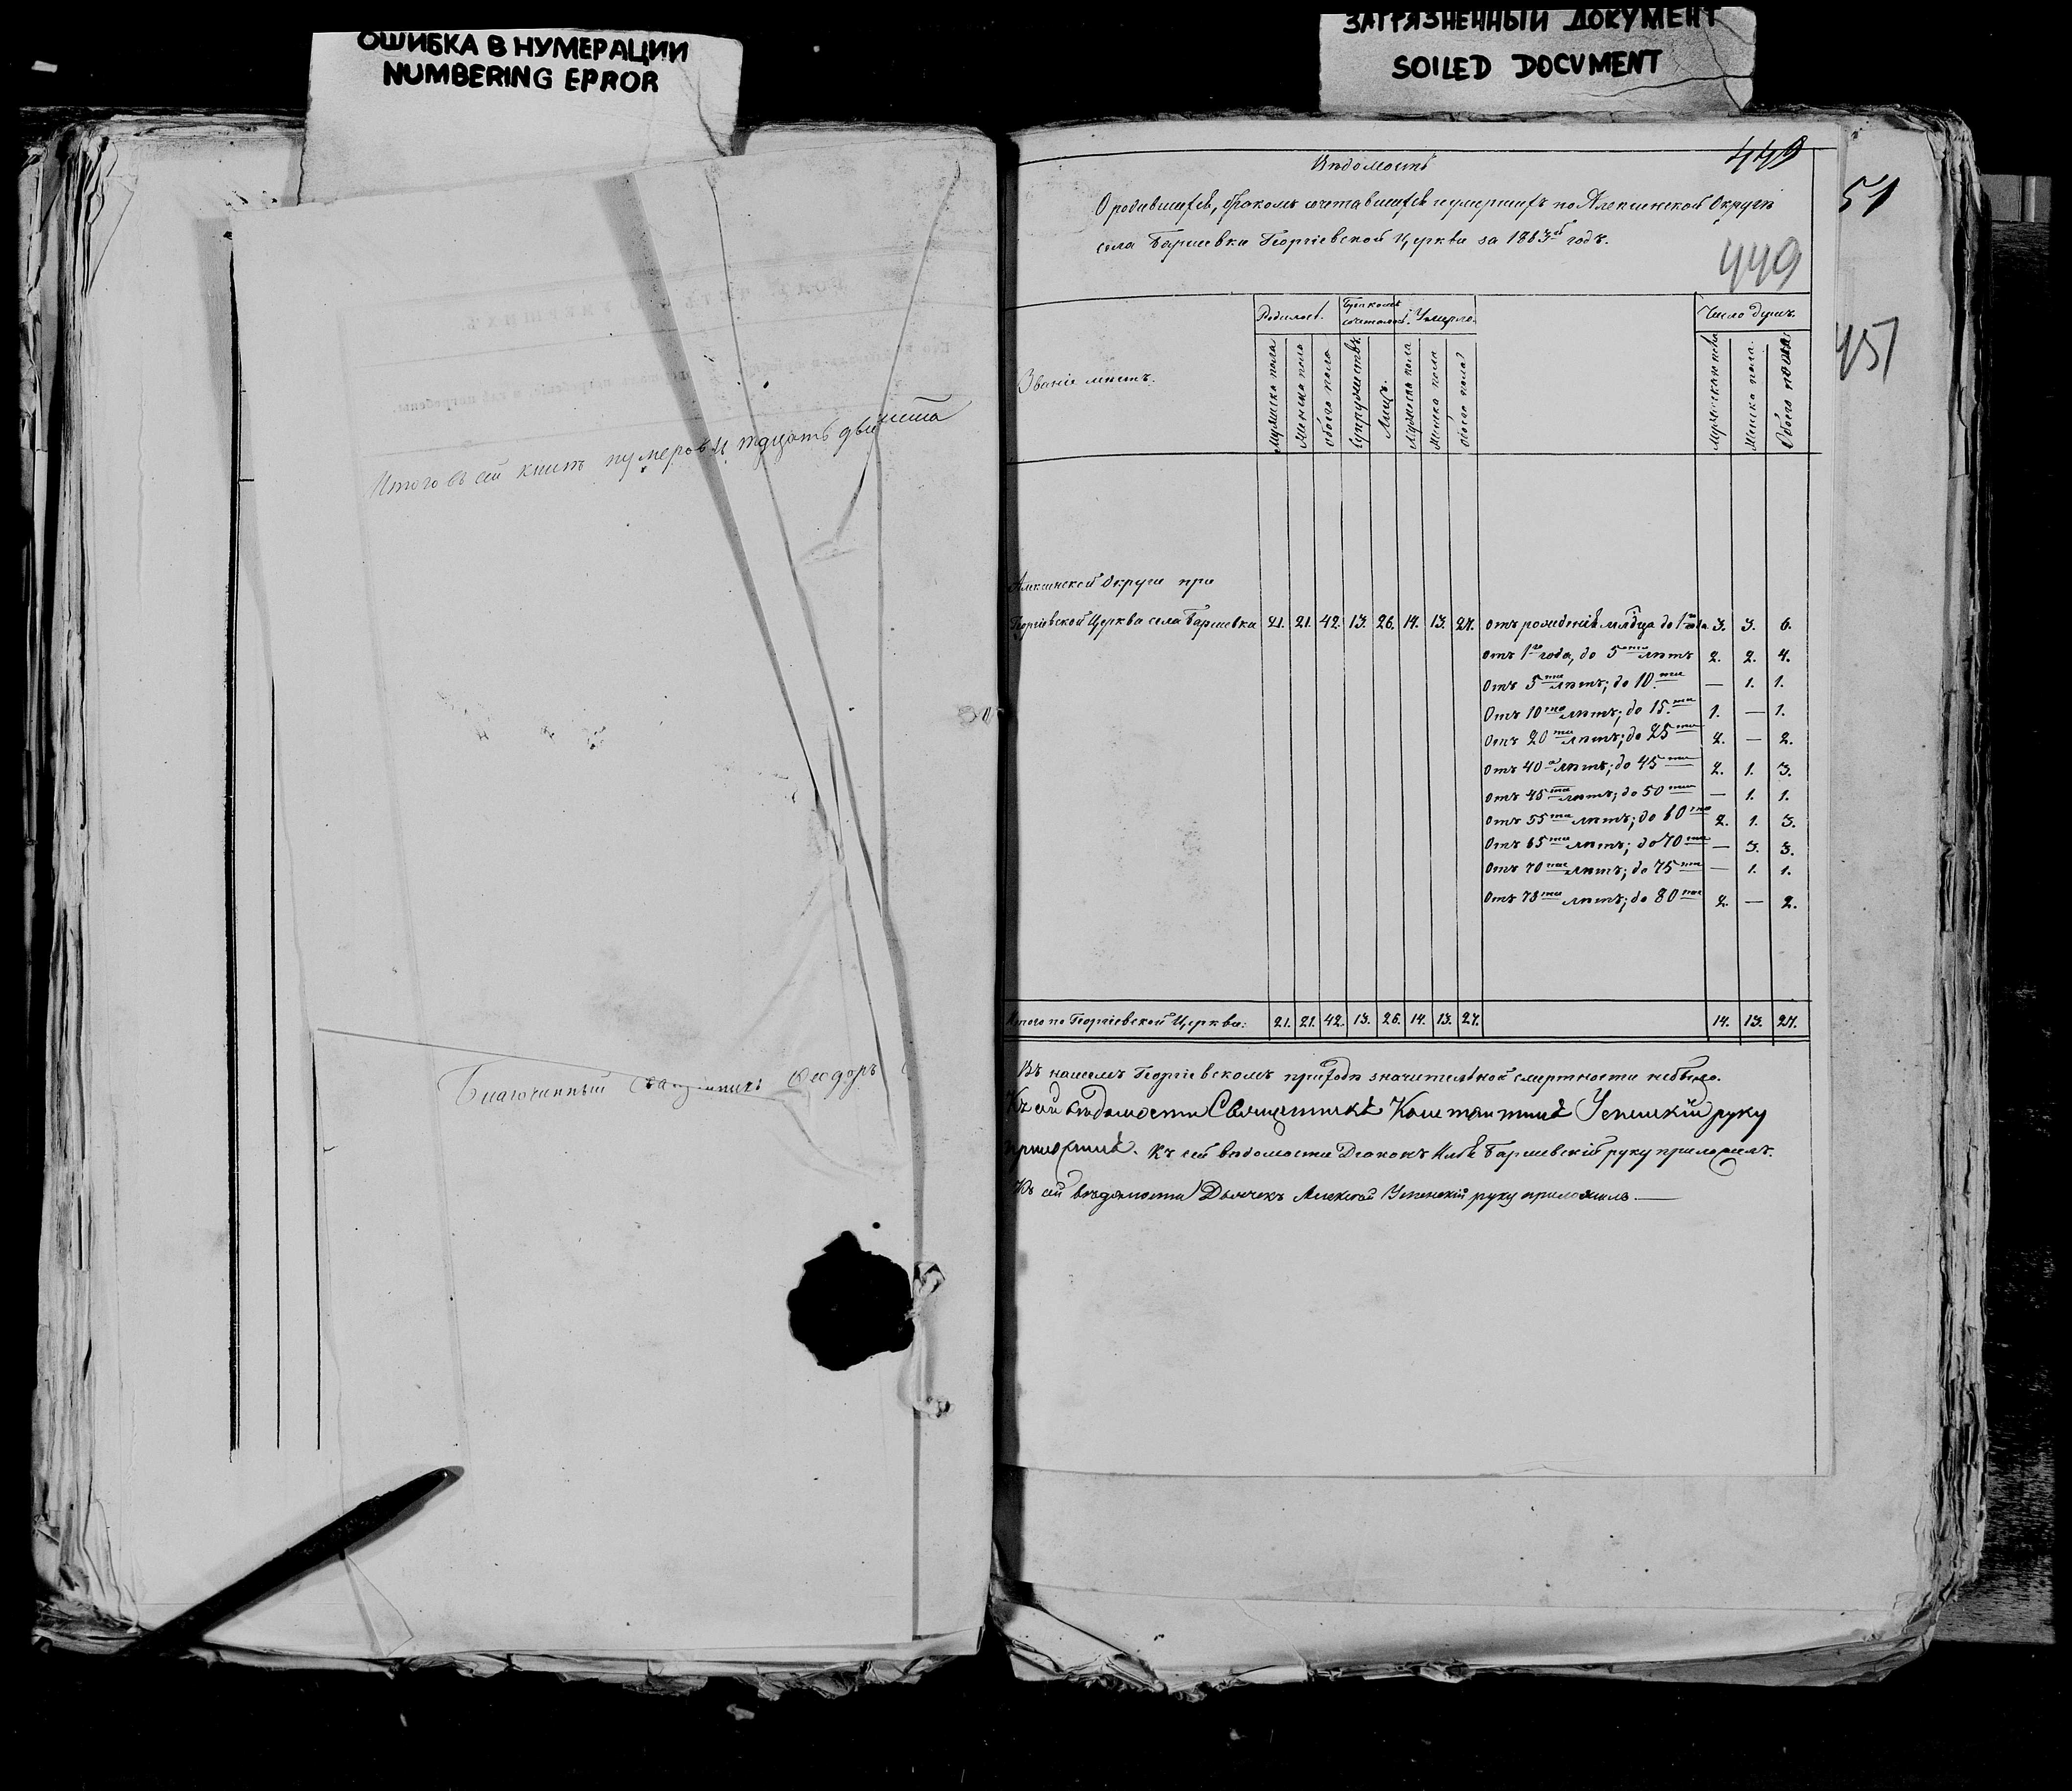 ОШИБКА В НУМЕРАЦИИ
NUMBERING ERROR
ЗАГРЯЗНЕННЫЙ ДОКУМЕНТ
SOILED DOCUMENT
Итого въ сей книгѣ нумеровъ тридцать два листа
Благочинный Священникъ Ѳеодоръ
449
51
Вѣдомость
О родившихся, бракомъ сочетавшихся и умершихъ по Алексинской Округѣ
села Баршевки Георгіевской Церкви за 1863й годъ.
449
451
Званіе мѣстъ.
Родилось.
Бракомъ сочеталось.
Умерло.
Число душъ.
Мужеска пола
Женска пола
Обоего пола
Супружествъ.
Лицъ.
Мужеска пола
Женска пола
Обоего пола
Мужеска пола
Женска пола.
Обоего пола
Алексинской Округи при
Георгіевской Церкви села Баршевки 21. 21. 42. 13. 26. 14. 13. 27. Отъ рожденія млдца до 1го 3. 3. 6.
Отъ 1го года, до 5ти лѣтъ 2. 2. 4.
Отъ 5ти лѣтъ; до 10ти — 1. 1.
Отъ 10ти лѣтъ; до 15ти 1. — 1.
Отъ 20ти лѣтъ; до 25ти 2. — 2.
Отъ 40а лѣтъ; до 45ти 2. 1. 3.
Отъ 45ти лѣтъ; до 50ти — 1. 1.
Отъ 55ти лѣтъ; до 60ти 2. 1. 3.
Отъ 65ти лѣтъ; до 70ти — 3. 3.
Отъ 70ти лѣтъ; до 75ти — 1. 1.
Отъ 75ти лѣтъ; до 80ти 2. — 2.
Итого по Георгіевской Церкви: 21. 21. 42. 13. 26. 14. 13. 27. 14. 13. 27.
Въ нашемъ Георгіевскомъ приходѣ значительной смертности небыло.
Къ сей вѣдомости Священникъ Константинъ Успенскій руку
приложилъ. Къ сей вѣдомости Діаконъ Илья Баршевскій руку приложилъ.
Къ сей вѣдомости Дьячекъ Алексѣй Успенскій руку приложилъ —